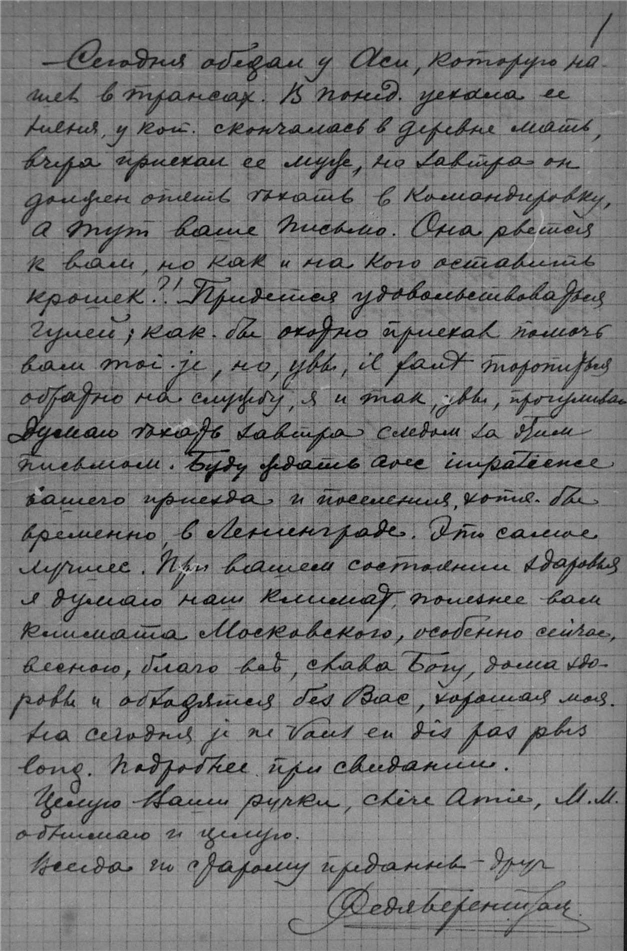 1
— Сегодня обедал у Аси, которую на-
шел в трансах. В понед. уехала ее
няня, у кот. скончалась в деревне мать,
вчера приехал ее муж, но завтра он
должен опять ехать в командировку,
а тут ваше письмо. Она рвется
к вам, но как и на кого оставить
крошек?! Придется удовольствоваться
Гулей; как бы охотно приехав помочь
вам moi-je, но, увы, il faut торопиться
обратно на службу, я и так, увы, прогуливаю
Думаю ехать завтра следом за этим
письмом. Буду ждать avec impatience
вашего приезда и поселения, хотя бы
временно, в Ленинграде. Это самое
лучшее. При вашем состоянии здоровья
я думаю наш климат полезнее вам
климата Московского, особенно сейчас,
весною, благо все, слава Богу, дома здо-
ровы и обходятся без Вас, хорошая моя.
На сегодня je ne Vous en dis pas plus
long. Подробнее при свидании.
Целую Ваши ручки, chère Amie, М.М.
обнимаю и целую.
Всегда по старому преданный друг